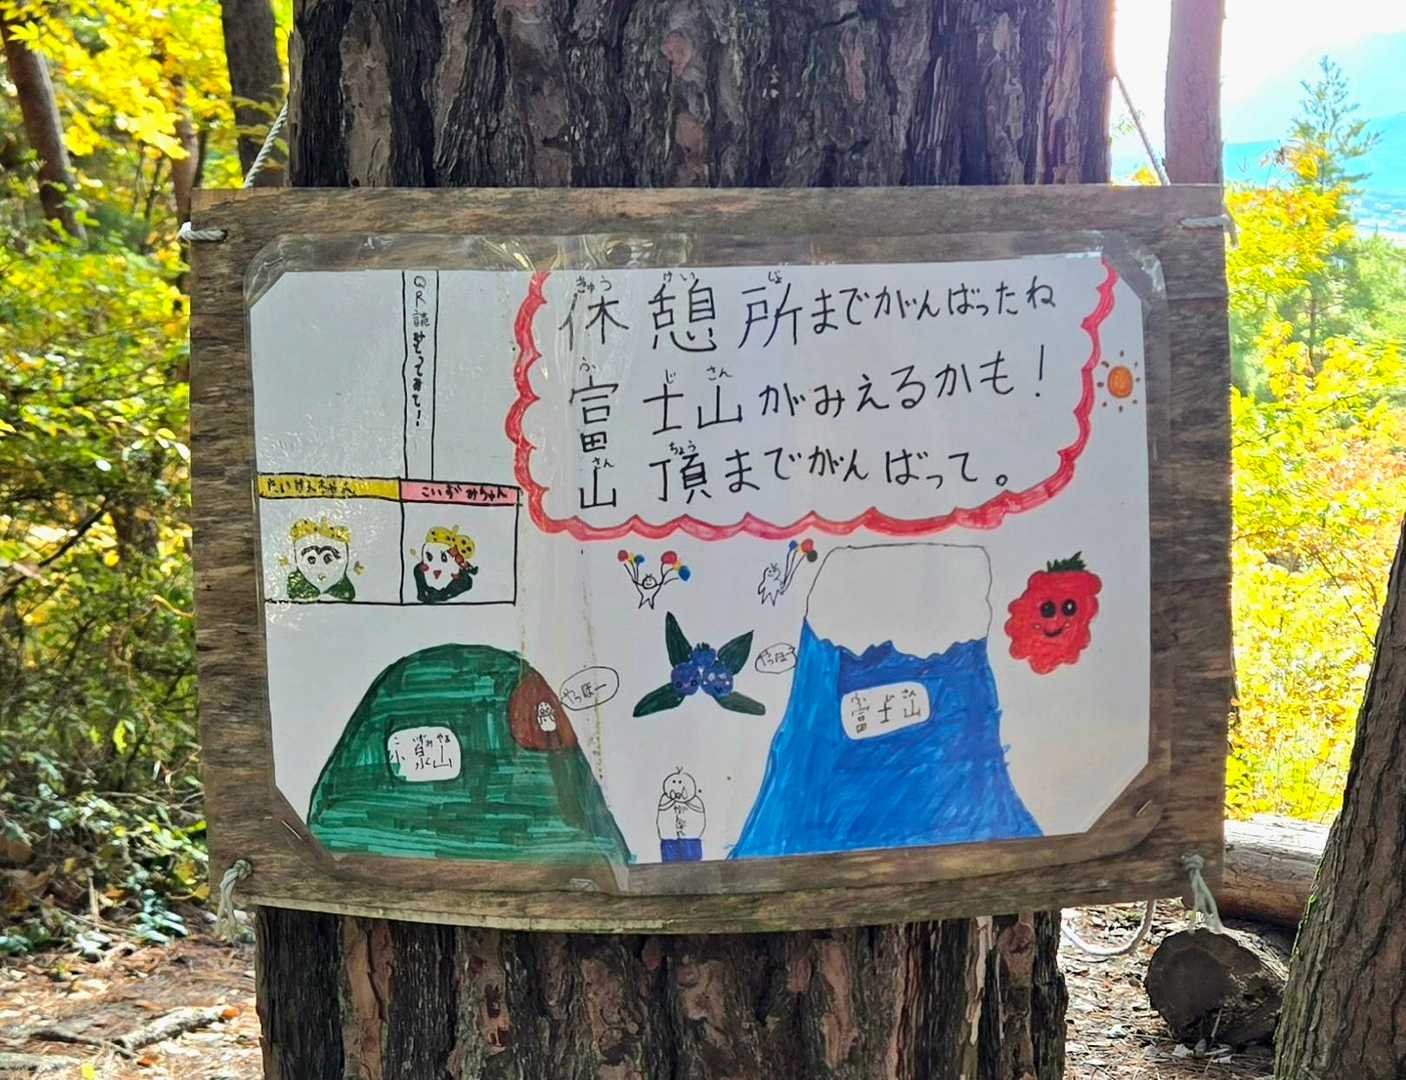 きゅう けい じょ
休憩所までがんばったね
ふ じ さん
富士山がみえるかも!
さん ちょう
山頂までがんばって。
QR読みとってみて!
たいけんちゃん
こいずみちゃん
やっほー
やっほー
こ いずみ やま
小泉山
ふ じ さん
富士山